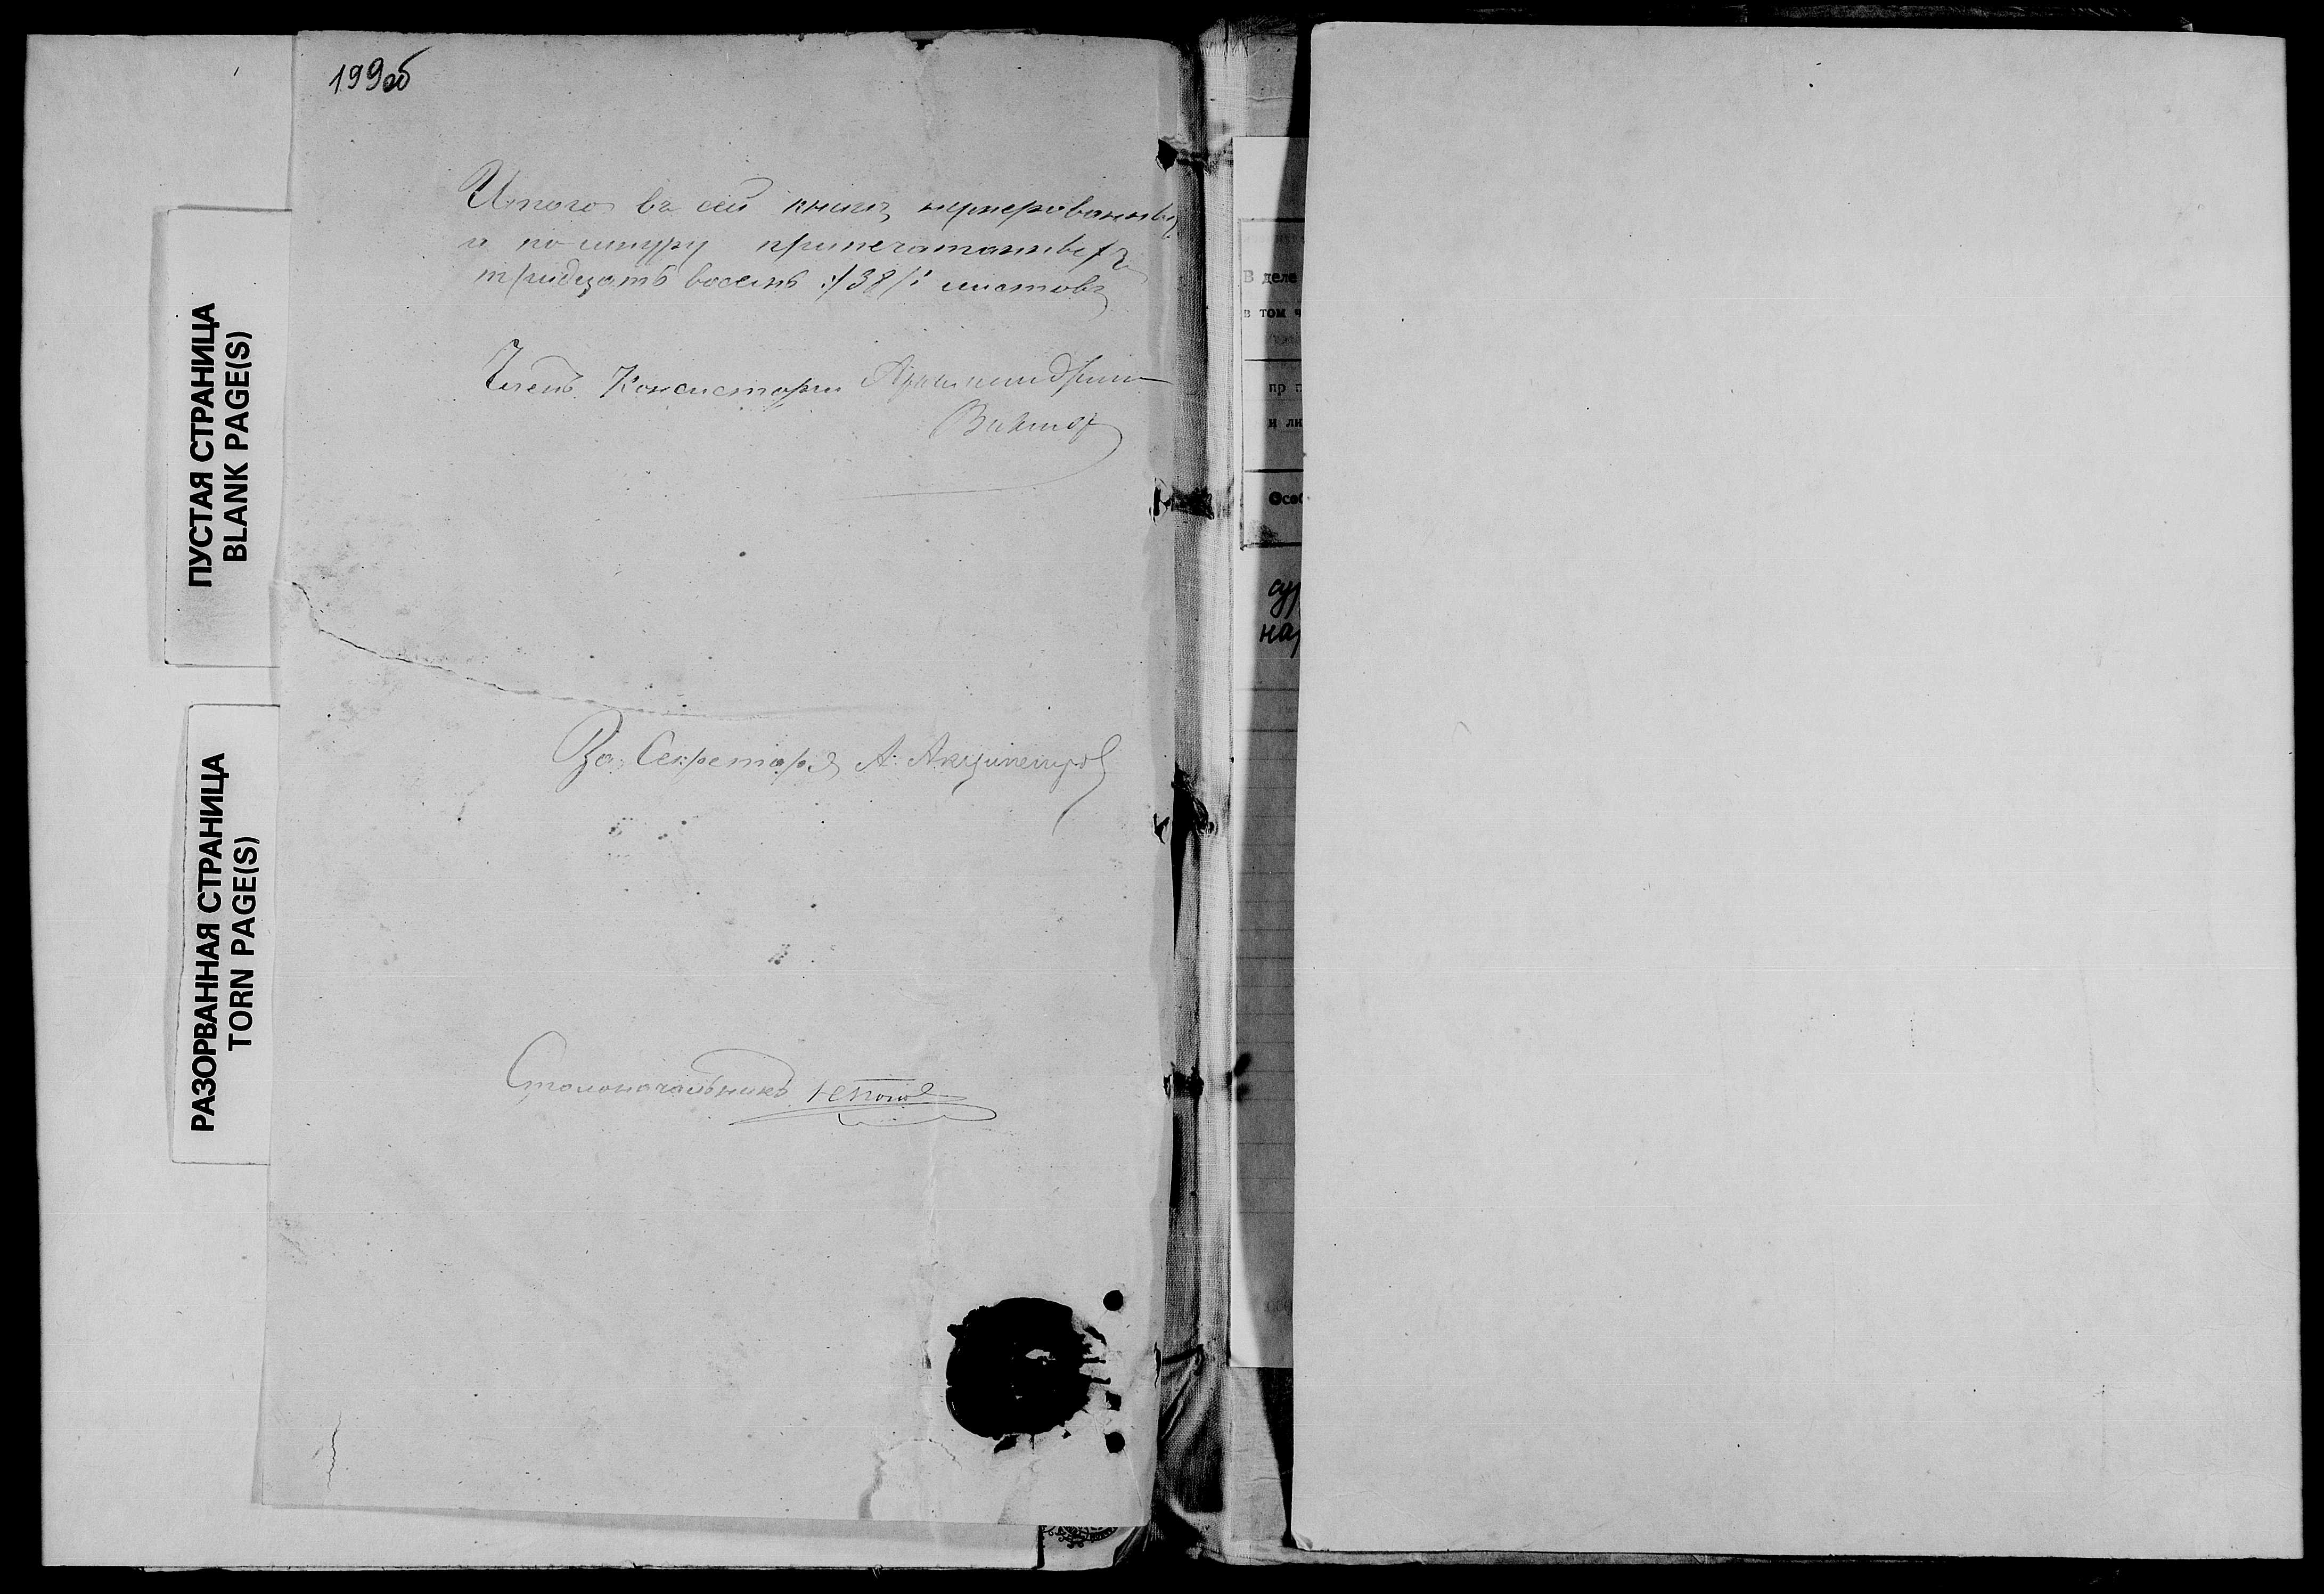 199об
Итого въ сей книгѣ нумерованныхъ
и по шнуру припечатанныхъ
тридцать восемь :/38/: листовъ
Членъ Консисторіи Архимандритъ
Викторъ
За Секретаря А.
Столоначальникъ
ПУСТАЯ СТРАНИЦА
BLANK PAGE(S)
РАЗОРВАННАЯ СТРАНИЦА
TORN PAGE(S)
В деле
в том ч
пр п
и ли
Особ
на